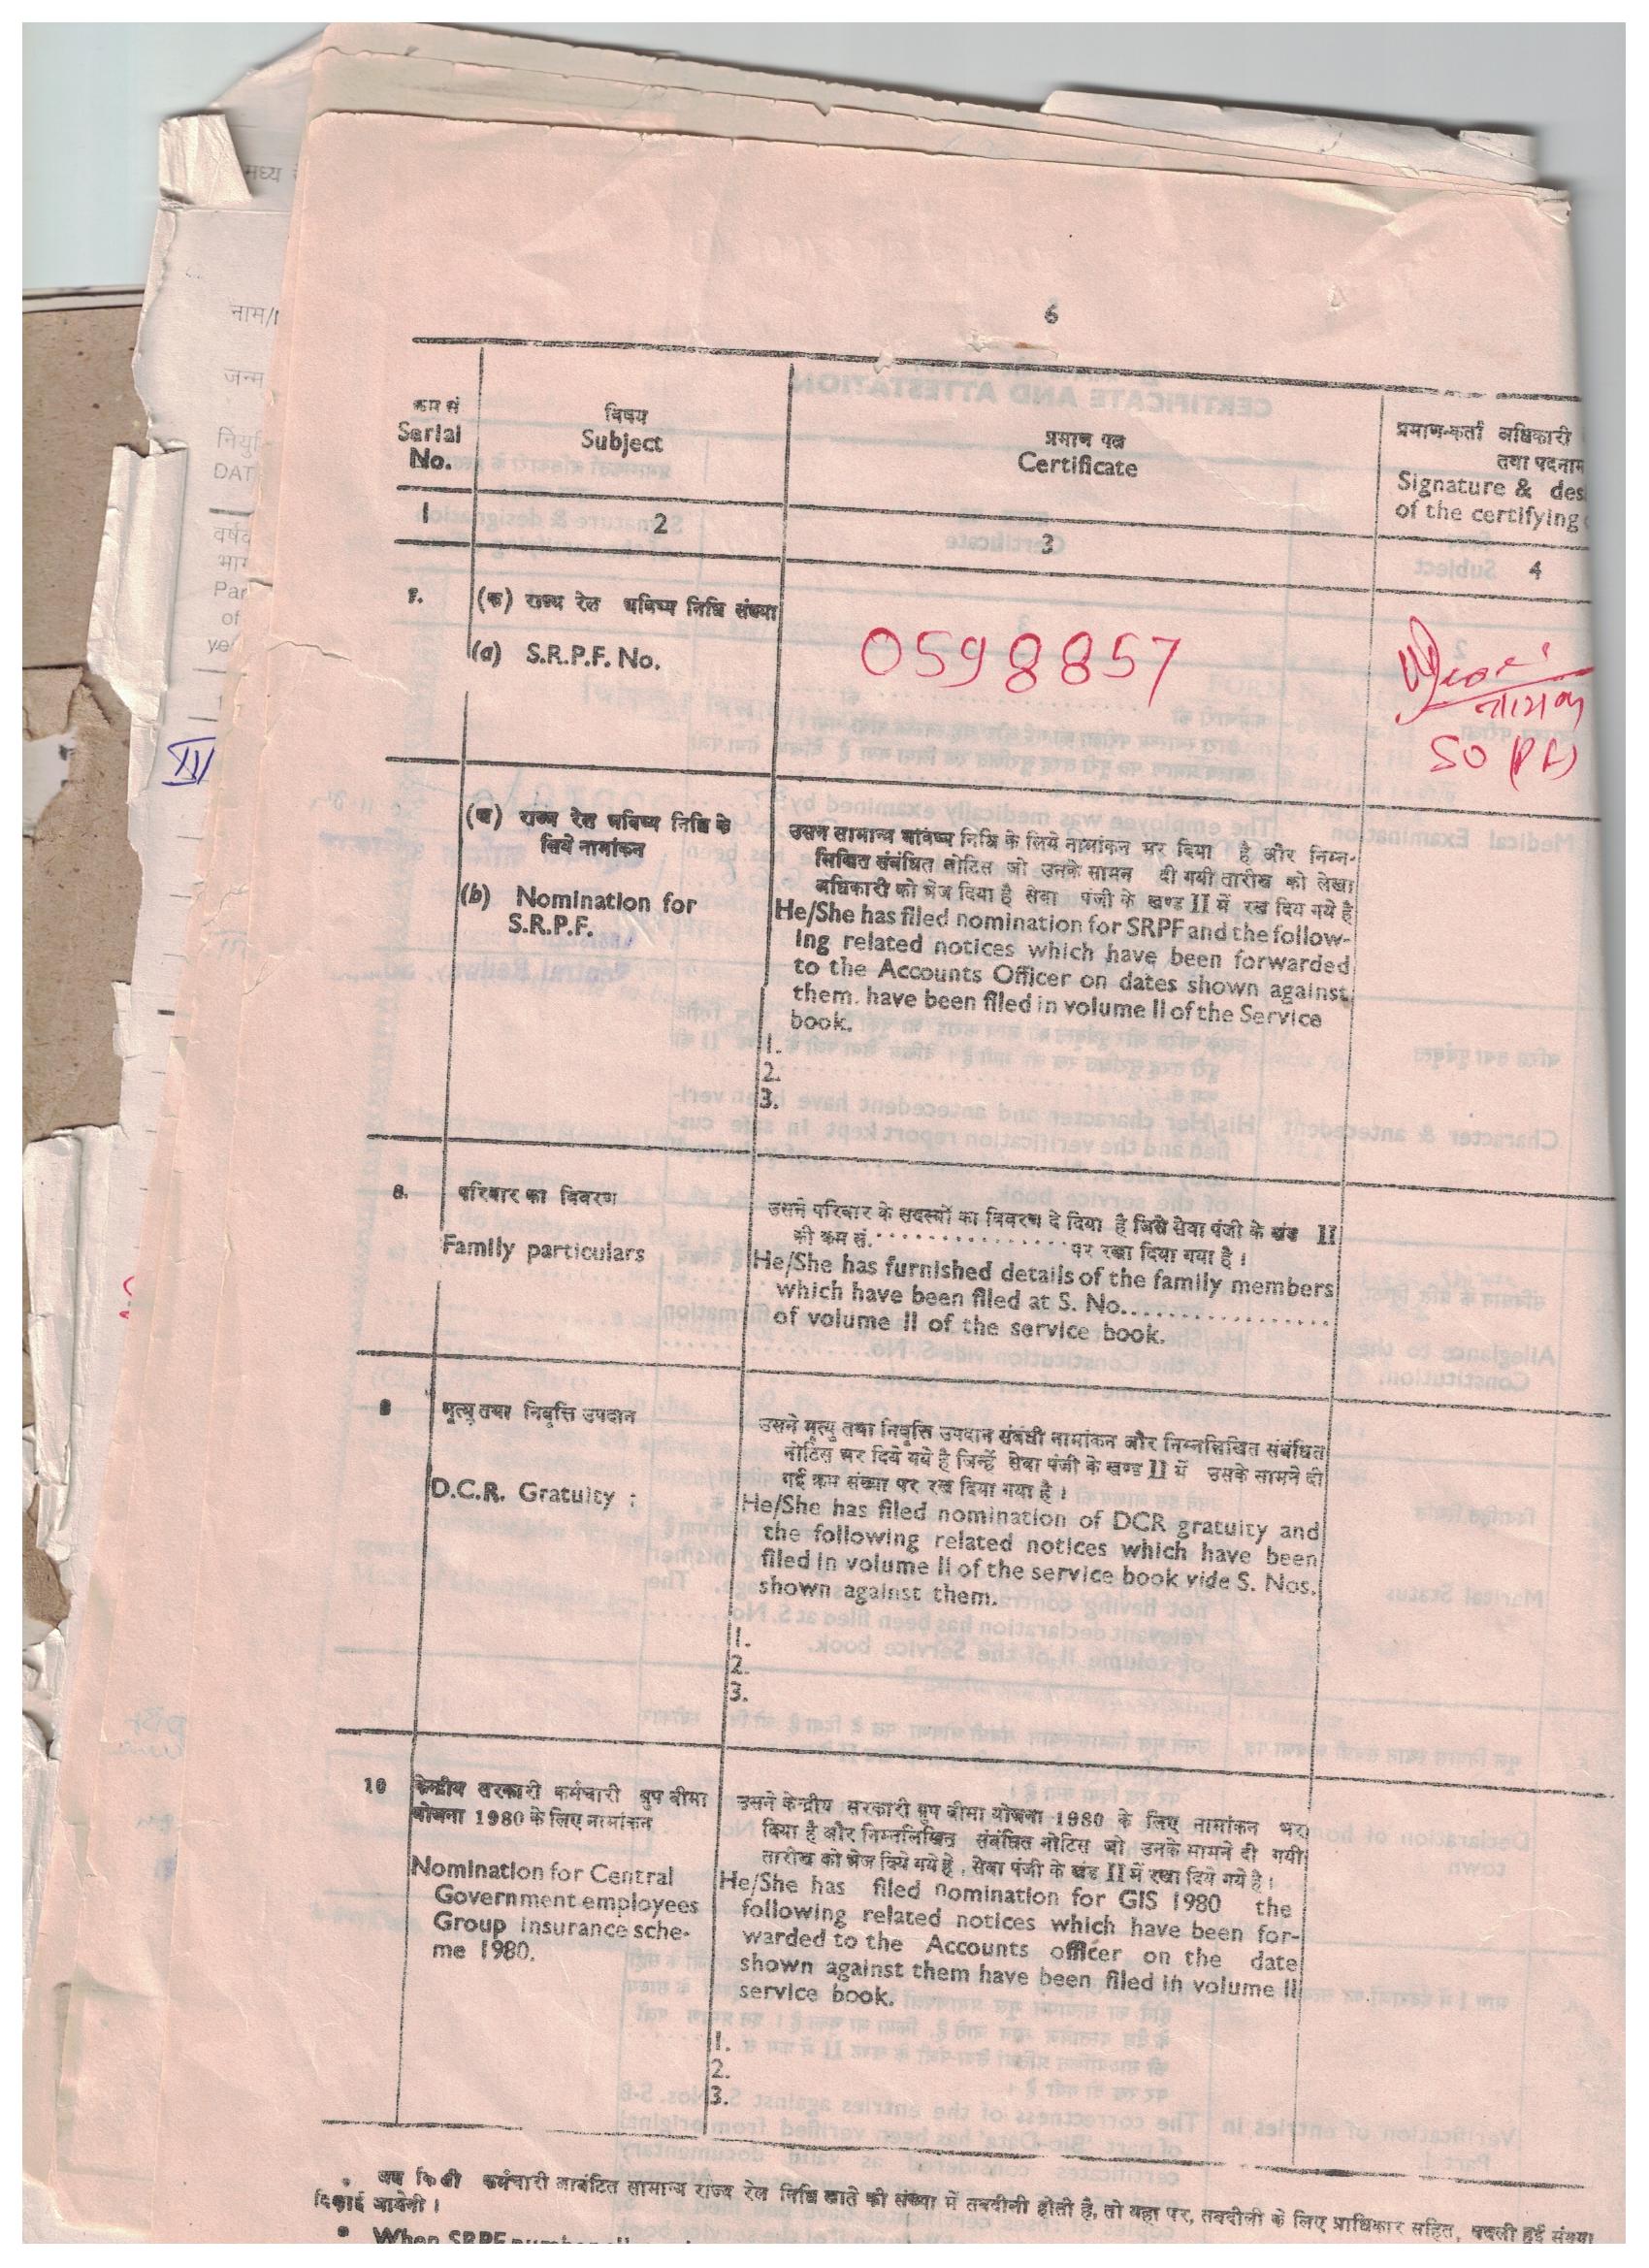 6
क्रम सं
Serial
No.
विषय
Subject
प्रमाण पत्र
Certificate
प्रमाण-कर्ता अधिकारी
तथा पदनाम
Signature & des
of the certifying
1
2
3
4
(क) राज्य रेल भविष्य निधि संख्या
(a) S.R.P.F. No.
0598857
SO (PF)
(ख) राज्य रेल भविष्य निधि के
लिये नामांकन
(b) Nomination for
S.R.P.F.
उसने सामान्य भविष्य निधि के लिये नामांकन भर दिया है और निम्न-
लिखित संबंधित नोटिस जो उनके सामन दी गयी तारीख को लेखा
अधिकारी को भेज दिया है सेवा पंजी के खण्ड II में रख दिय गये है
He/She has filed nomination for SRPF and the follow-
ing related notices which have been forwarded
to the Accounts Officer on dates shown against
them. have been filed in volume II of the Service
book.
1.
2.
3.
8.
परिवार का विवरण
Family particulars
उसने परिवार के सदस्यों का विवरण दे दिया है जिसे सेवा पंजी के खंड II
की क्रम सं. ................ पर रखा दिया गया है ।
He/She has furnished details of the family members
which have been filed at S. No.................
of volume II of the service book.
मृत्यु तथा निवृत्ति उपदान
D.C.R. Gratuity :
उसने मृत्यु तथा निवृत्ति उपदान संबंधी नामांकन और निम्नलिखित संबंधित
नोटिस भर दिये गये है जिन्हें सेवा पंजी के खण्ड II में उसके सामने दी
गई क्रम संख्या पर रख दिया गया है ।
He/She has filed nomination of DCR gratuity and
the following related notices which have been
filed in volume II of the service book vide S. Nos.
shown against them.
1.
2.
3.
10
केन्द्रीय सरकारी कर्मचारी ग्रुप बीमा
योजना 1980 के लिए नामांकन
Nomination for Central
Government employees
Group insurance sche-
me 1980.
उसने केन्द्रीय सरकारी ग्रुप बीमा योजना 1980 के लिए नामांकन भर
दिया है और निम्नलिखित संबंधित नोटिस जो उनके सामने दी गयी
तारीख को भेज दिये गये हे , सेवा पंजी के खंड II में रखा दिये गये है ।
He/She has filed nomination for GIS 1980 the
following related notices which have been for-
warded to the Accounts officer on the date
shown against them have been filed in volume II
service book.
1.
2.
3.
कर्मचारी आबंटित सामान्य राज्य रेल निधि खाते की संख्या में तबदीली होती है, तो यहा पर, तबदीली के लिए प्राधिकार सहित, बदली हुई संख्या
दिखाई जायेगी ।
When SRPF number
मध्य
नाम/
जन्म
DAT
Par
of
IV